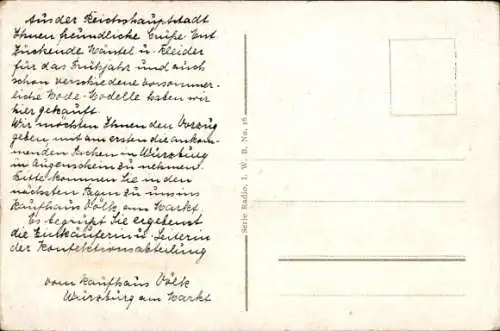 Aus der Reichshauptstadt
Ihnen freundliche Grüße. Ent
zückende Mäntel u. Kleider
für das Frühjahr und auch
schon verschiedene vorsommer-
liche Mode-Modelle haben wir
hier gekauft.
Wir möchten Ihnen den Vorzug
geben, mit am ersten die ankom-
menden Sachen in Würzburg
in Augenschein zu nehmen.
Bitte kommen Sie in den
nächsten Tagen zu uns ins
Kaufhaus Völk am Markt.
Es begrüßt Sie ergebenst
die Einkäuferin u. Leiterin
der Konfektionsabteilung
vom Kaufhaus Völk
Würzburg am Markt
Serie Radio, I. W. B. No. 16